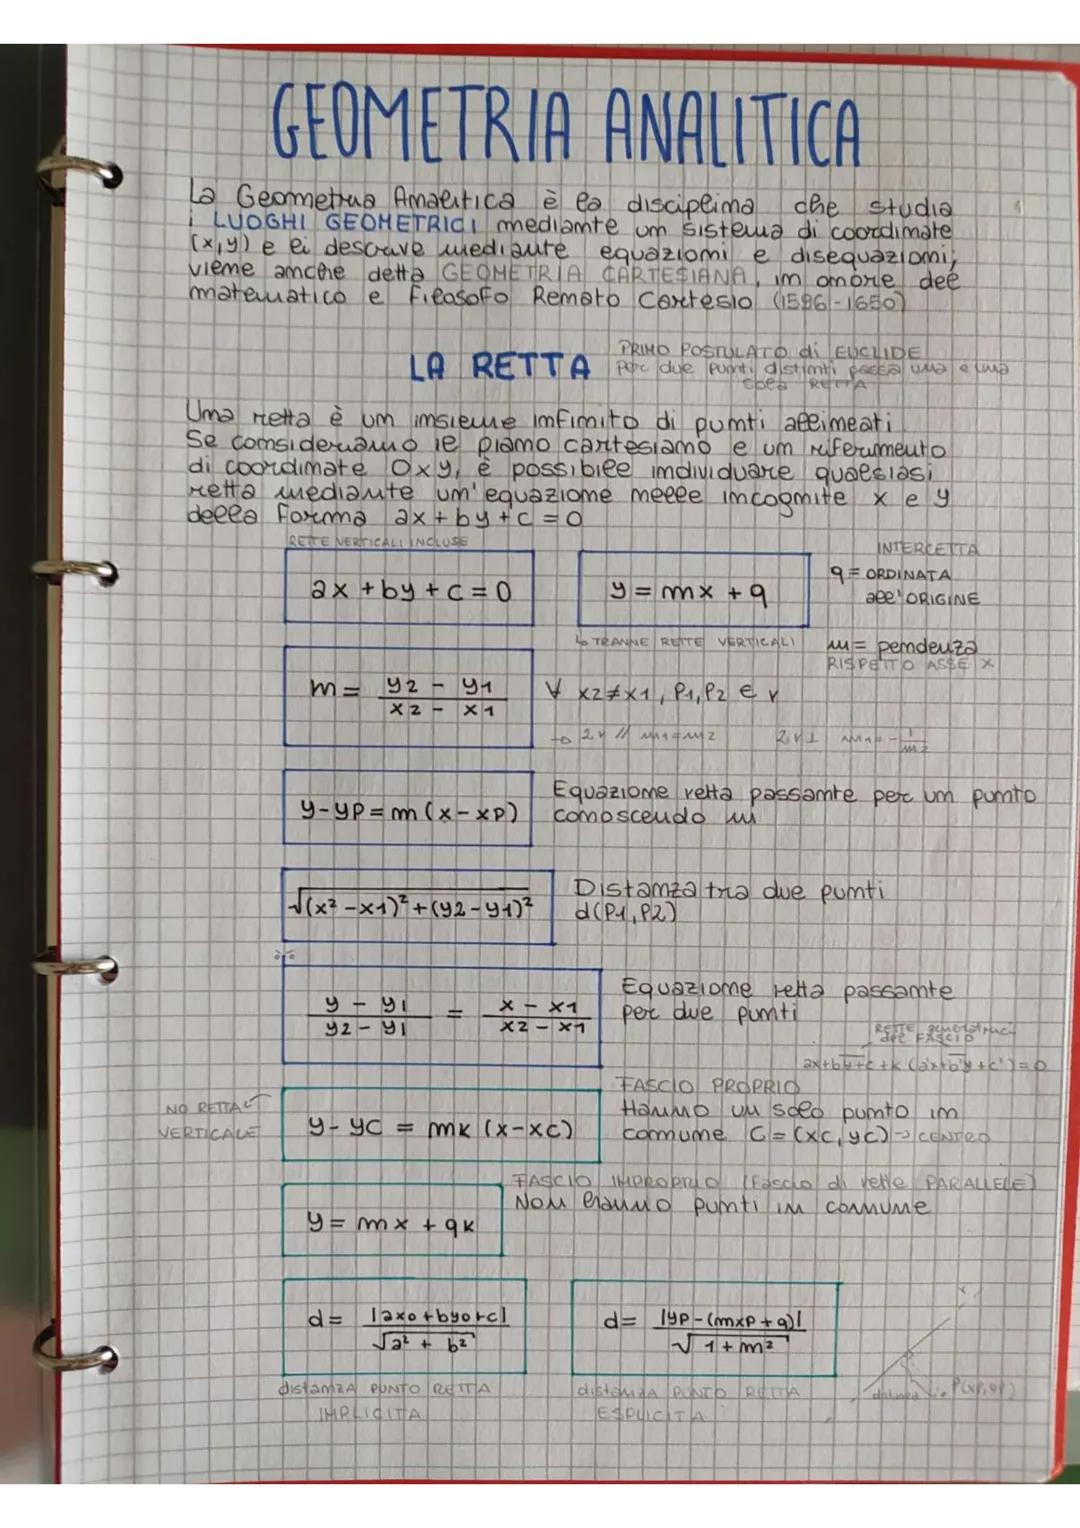 GEOMETRIA ANALITICA
La Geometria Analitica è la disciplina che studia
i LUOGHI GEOMETRICI mediante un sistema di coordinate
(x,y) e li descrive mediante equazioni e disequazioni;
viene anche detta GEOMETRIA CARTESIANA, in onore del
matematico e filosofo Renato Cartesio (1596-1650)
LA RETTA
PRIMO POSTULATO di EUCLIDE
Per due punti distinti passa una e una
sola RETTA
Una retta è un insieme infinito di punti allineati
Se consideriamo il piano cartesiano e un riferimento
di coordinate Oxy, è possibile individuare qualsiasi
retta mediante un'equazione nelle incognite x e y
della forma ax+by+c=0
RETTE VERTICALI INCLUSE
ax+by+c=0
y=mx+q
INTERCETTA
q=ORDINATA
all'ORIGINE
↳ TRANNE RETTE VERTICALI
m= pendenza
RISPETTO ASSE X
m= y2 - y1 / x2 - x1
∀ x2≠x1, P1,P2 ∈ r
→ 2r // m1=m2 2r⊥ m1=-1/m2
y-yP=m(x-xP)
Equazione retta passante per un punto
conoscendo m
√(x²-x1)²+(y2-y1)²
Distanza tra due punti
d(P1,P2)
y - y1 / y2 - y1 = x - x1 / x2 - x1
Equazione retta passante
per due punti
RETTE generatrici
del FASCIO
ax+by+c+k(a'x+b'y+c')=0
NO RETTA
VERTICALE
y-yC = mk(x-xC)
FASCIO PROPRIO
Hanno un solo punto in
comune C=(xC,yC)→CENTRO
FASCIO IMPROPRIO (fascio di rette PARALLELE)
Non hanno punti in comune
y=mx+qk
d= |ax0+by0+c| / √a²+b²
d= |yP-(mxP+q)| / √1+m²
distanza PUNTO RETTA
IMPLICITA
distanza PUNTO RETTA
ESPLICITA
r
distanza
P(xP,yP)